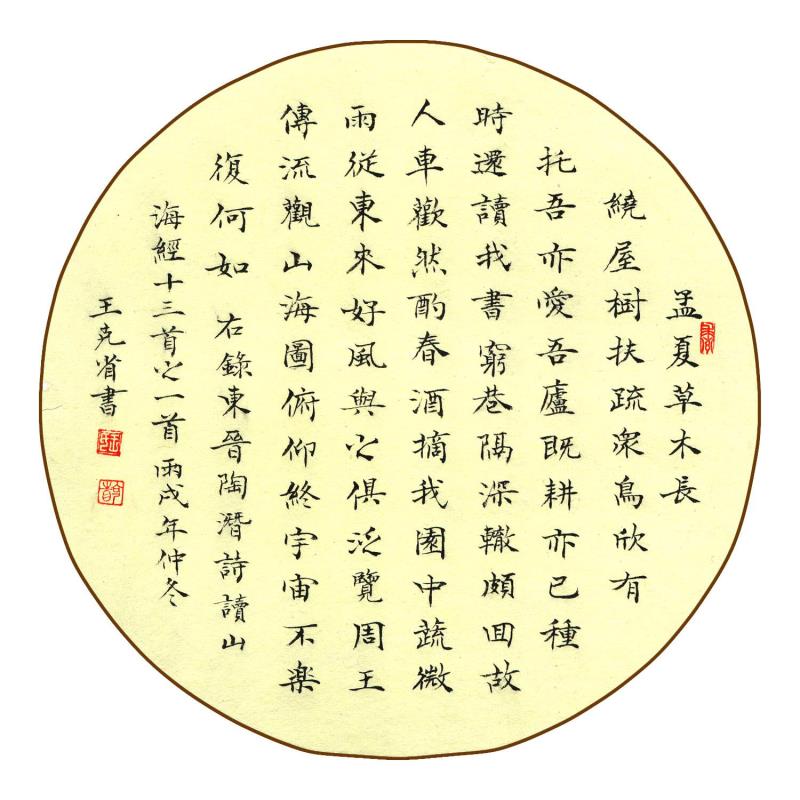 孟夏草木長
繞屋樹扶疏衆鳥欣有
托吾亦愛吾廬既耕亦已種
時還讀我書窮巷隔深轍頗回故
人車歡然酌春酒摘我園中蔬微
雨從東來好風與之俱泛覽周王
傳流觀山海圖俯仰終宇宙不樂
復何如 右錄東晉陶潛詩讀山
海經十三首之一首 丙戌年仲冬
王克省書